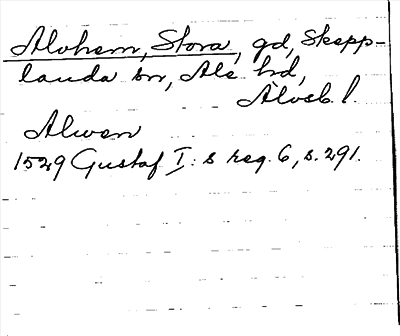 Alvhem, Stora, gd, Skepp-
landa sn, Ale hd,
Älvsb. l.
Alwen
1529 Gustaf I:s reg. 6, s. 291.